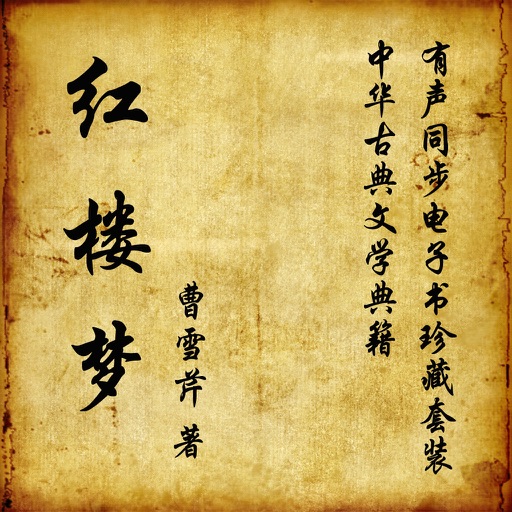 有声同步电子书珍藏套装
中华古典文学典籍
曹雪芹著
红楼梦